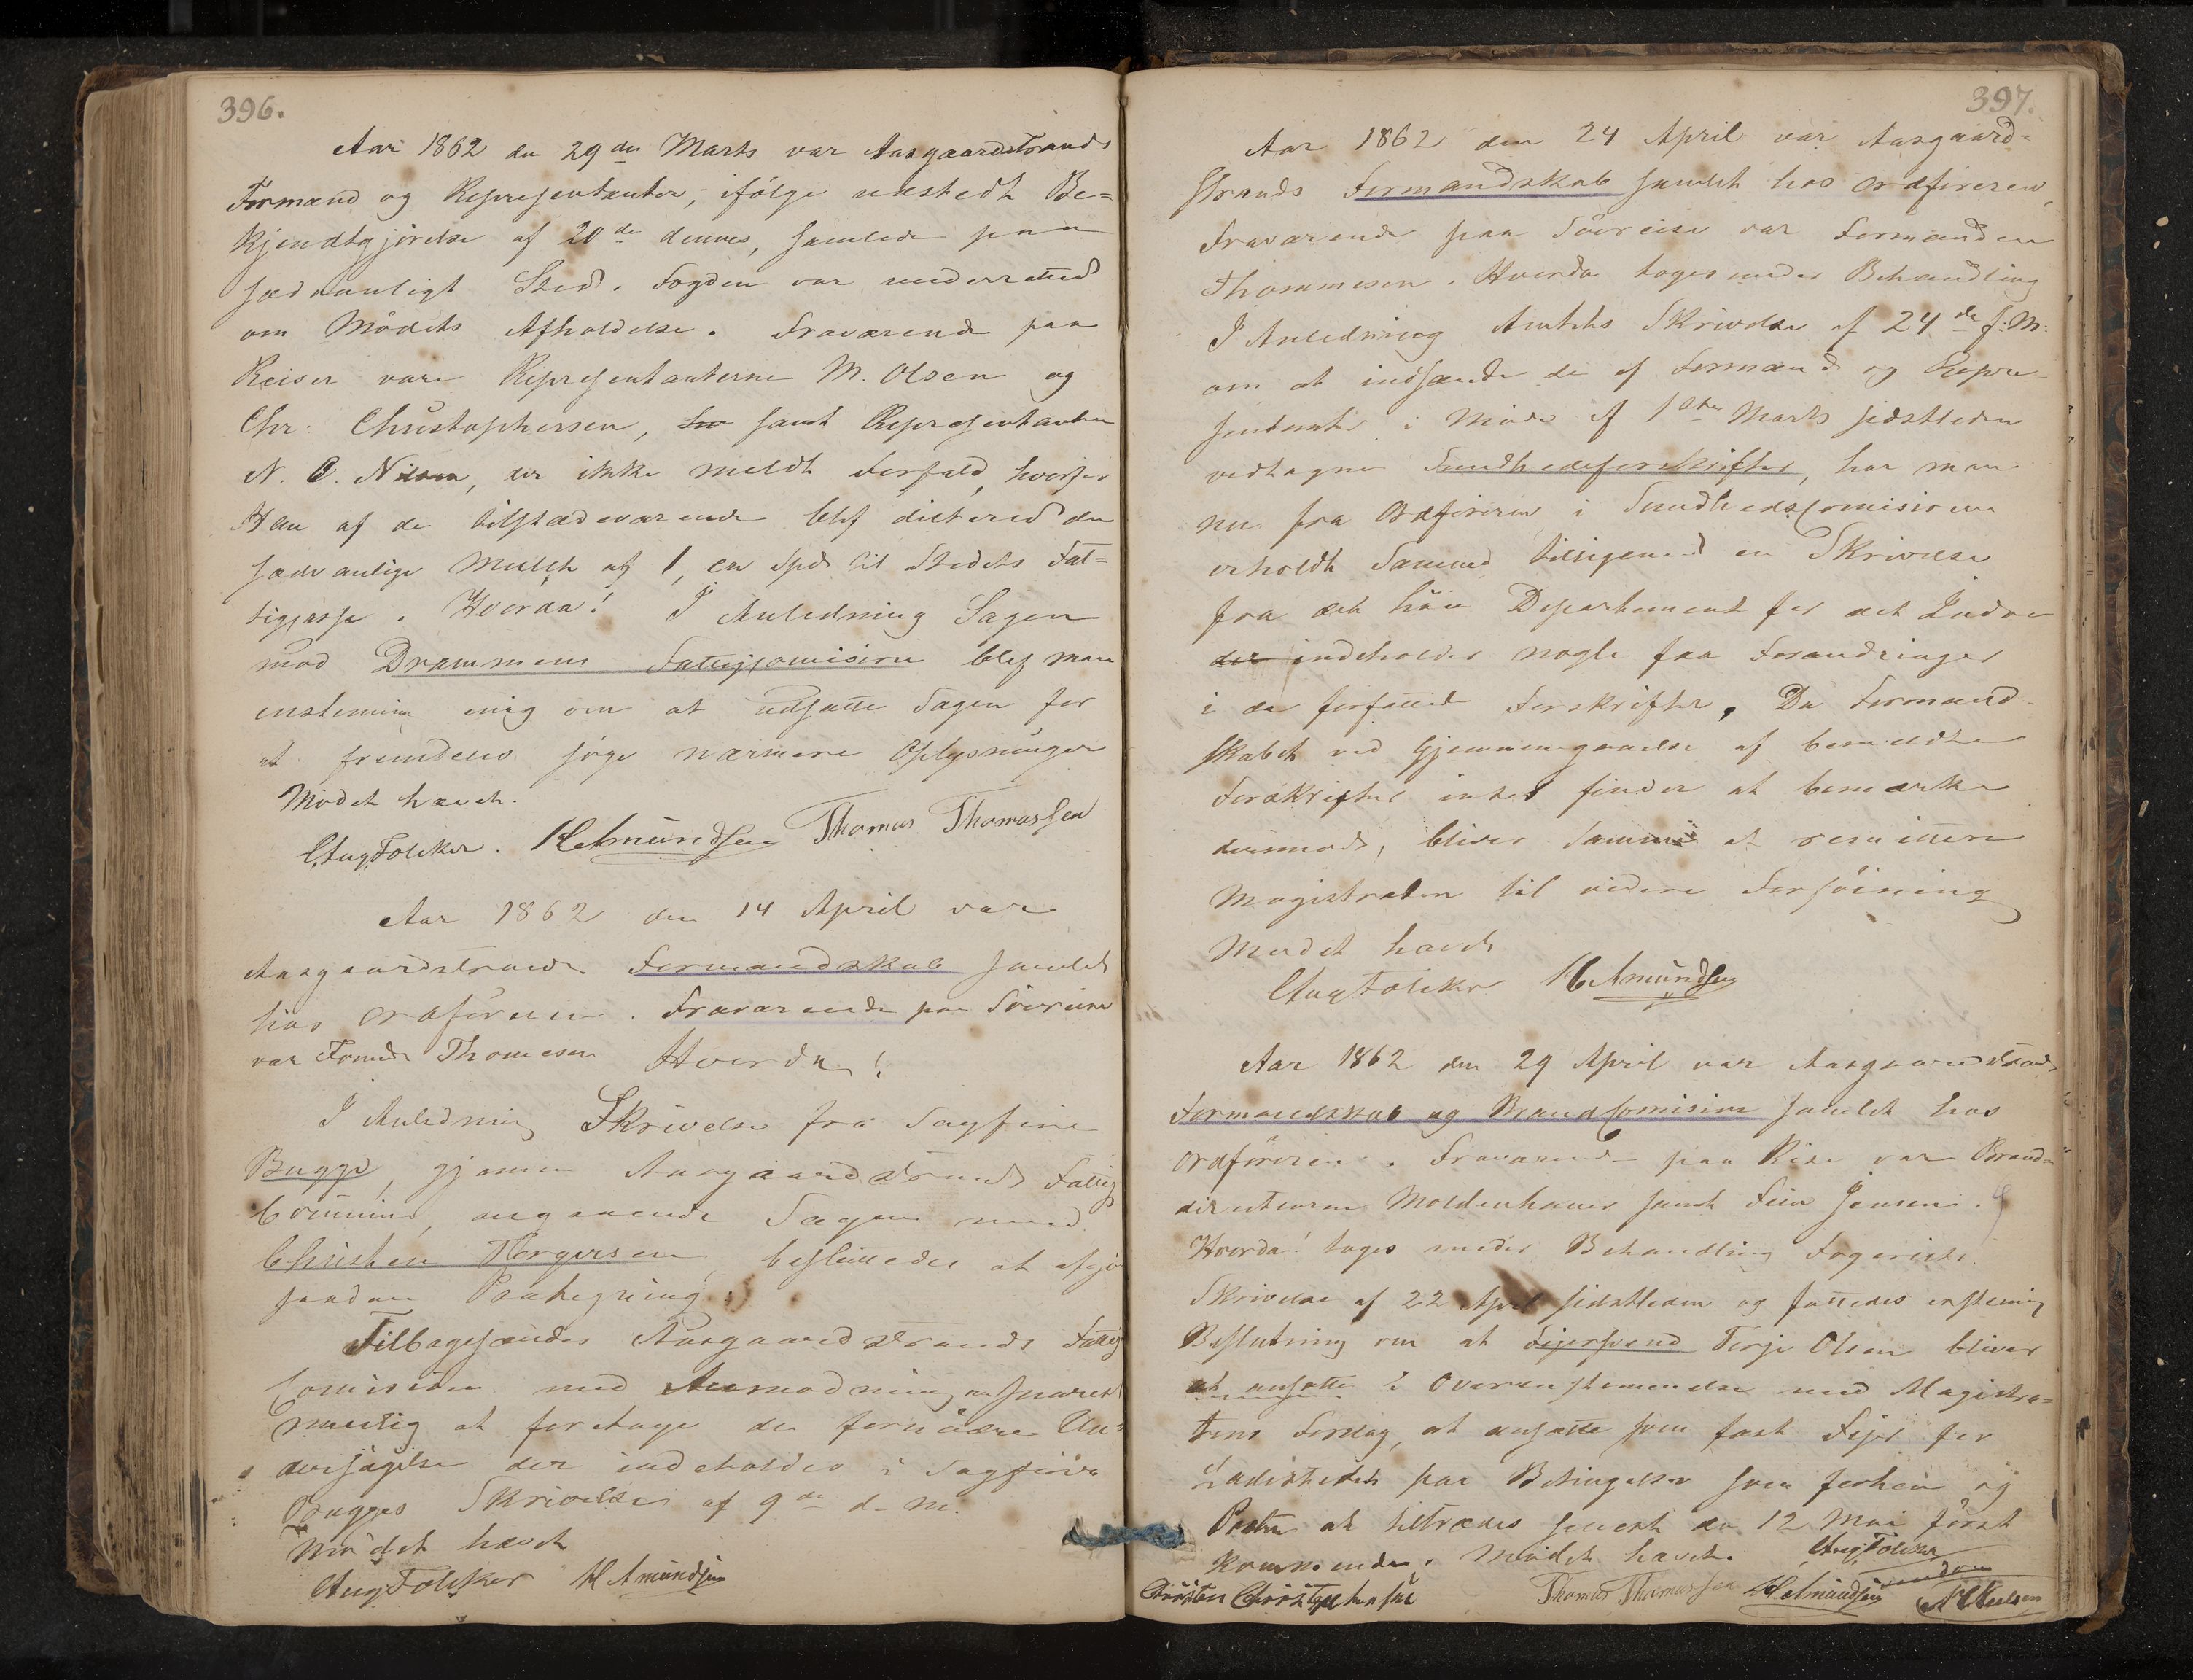 396.
Aar 1862 den 29de Marts var Aasgaardstrands
Formænd og Repræsentanter, ifölge udstedt Be=
kjendtgjörelse af 20de dennes, samlede paa
sædvanligt Sted. Fogden var underrettet
om Mödets Afholdelse. Fraværende paa
Reiser vare Repræsentanterne M. Olsen og
Chr: Christophersen, samt Repræsentanten
N. C. Nilsen, der ikke meldt Forfald, hvorfor
Han af de tilstædeværende blef dikteret den
sædvanlige Mulkt af 1, en Spd til Stedets Fat=
tigkasse. Hvorda! I Anledning Sagen
mod Drammens Fattigcomision blef man
enstemmig enig om at udsætte Sagen for
at fremdeles söge nærmere Oplysninger
Mödet hævet.
Aug Foleker. H Amundsen Thomas Thomassen
Aar 1862 den 14 April var
Aasgaardstrands Formandskab samlet
hos Ordföreren. Fraværende paa Söereise
var Formd Thomesen Hvorda!
I Anledning Skrivelse fra Sagförer
Bugge, gjennem Aasgaardstrands Fattig
Comision, angaaende Sagen mod
Christen Torgersen besluttedes at afgive
saadan Paategning:
Tilbagesendes Aasgaardstrands Fattig
Comision med Anmodning om snarest
muelig at foretage den fornödne Un=
dersögelse der indeholdes i Sagförer
Bugges Skrivelse af 9de d. M.
Mödet hævet
Aug Foleker H Amundsen
397.
Aar 1862 den 24 April var Aasgaard=
strands Formandskab samlet hos Ordföreren,
Fraværende paa Söereise var Formanden
Thommesen. Hvorda toges under Behandling
I Anledning Amtets Skrivelse af 24de f: M:
om at indsænde de af Formænd og Repræ
sentanter i Möde af 1ste Marts sidstleden
vedtagne Sundhedsforskrifter, har man
nu fra Ordföreren i Sundhedscomisionen
erholdt Samme tilligemed en Skrivelse
fra det höie Departement for det Indre
der indeholder nogle faa Forandringer
i de forfattede Forskrifter, Da Formand
skabet ved Gjennemgaaelse af bemeldte
Forskrifter intet finder at bemærke
derimod, bliver Samme at remittere
Magistraten til videre Forföining
Mödet hævet
Aug Foleker H Amundsen
Aar 1862 den 29 April var Aasgaardstrands
Formandskab og BrandComision samlet hos
Ordföreren. Fraværende paa Reise var Brand
directeuren Moldenhauer samt Feier Jensen.
Hvorda! toges under Behandling Fogeriets
Skrivelse af 22 April sidstleden og fattedes enstemig
Beslutning om at Fejersvend Terje Olsen bliver
at ansætte i Overensstemmelse med Magistra=
tens Forslag, at ansætte som fast Fejer for
Ladestedet paa Betingelser som forhen og
Posten at tiltrædes senest den 12 Mai först
kommende. Mödet hævet. Aug Foleker
Christen Christophersen Thomas Thomassen H Amundsen N C Nielsen